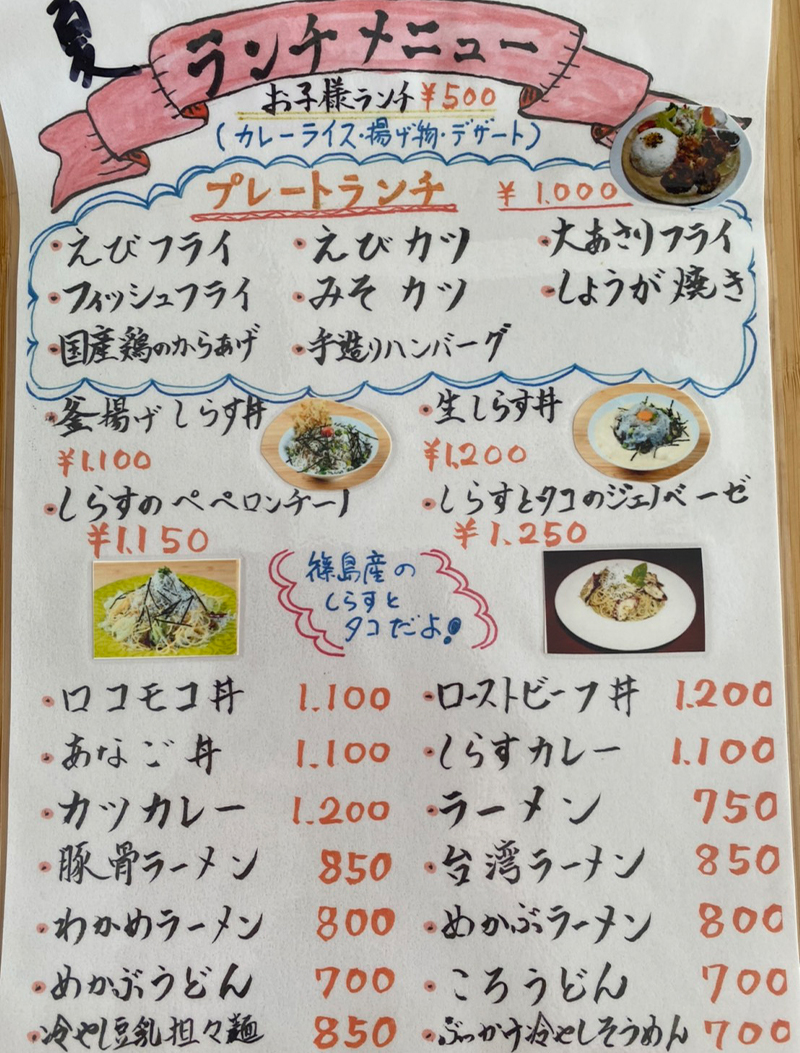 夏
ランチメニュー
お子様ランチ ¥500
(カレーライス・揚げ物・デザート)
プレートランチ ¥1.000
・えびフライ ・えびカツ ・大あさりフライ
・フィッシュフライ ・みそカツ ・しょうが焼き
・国産鶏のからあげ ・手造りハンバーグ
・釜揚げしらす丼 ・生しらす丼
¥1.100 ¥1.200
・しらすのペペロンチーノ ・しらすとタコのジェノベーゼ
¥1.150 ¥1.250
篠島産の
しらすと
タコだよ!
・ロコモコ丼 1.100 ・ローストビーフ丼 1.200
・あなご丼 1.100 ・しらすカレー 1.100
・カツカレー 1.200 ・ラーメン 750
・豚骨ラーメン 850 ・台湾ラーメン 850
・わかめラーメン 800 ・めかぶラーメン 800
・めかぶうどん 700 ・ころうどん 700
・冷やし豆乳担々麺 850 ・ぶっかけ冷やしそうめん 700